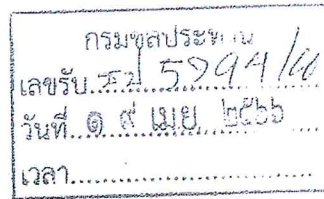 กรมชลประทาน
เลขรับ 5994/
วันที่ ๑๙ เมย ๒๕๖๖
เวลา